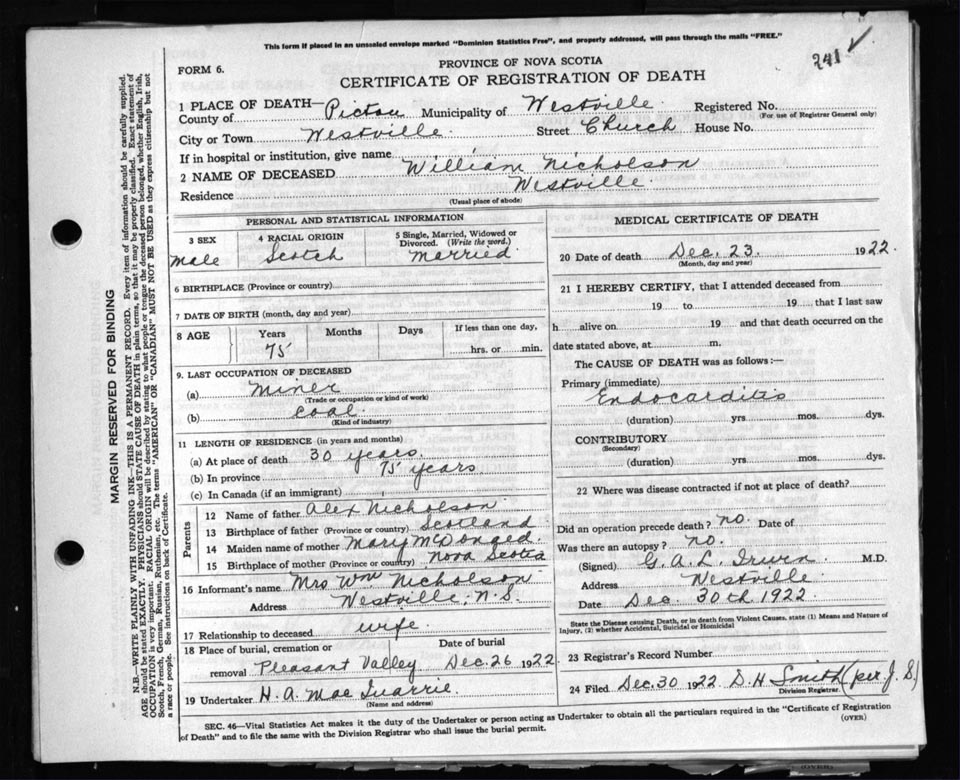 This form if placed in an unsealed envelope marked "Dominion Statistics Free", and properly addressed, will pass through the mails "FREE."
241 ✓
FORM 6.
PROVINCE OF NOVA SCOTIA
CERTIFICATE OF REGISTRATION OF DEATH
1 PLACE OF DEATH—
County of Pictou Municipality of Westville Registered No.
(For use of Registrar General only)
City or Town Westville Street Church House No.
If in hospital or institution, give name
2 NAME OF DECEASED William Nicholson
Residence Westville
(Usual place of abode)
PERSONAL AND STATISTICAL INFORMATION
3 SEX
male
4 RACIAL ORIGIN
Scotch
5 Single, Married, Widowed or Divorced. (Write the word.)
Married
6 BIRTHPLACE (Province or country)
7 DATE OF BIRTH (month, day and year)
8 AGE Years Months Days If less than one day,
75 hrs. or min.
9. LAST OCCUPATION OF DECEASED
(a) Miner
(Trade or occupation or kind of work)
(b) coal.
(Kind of industry)
11 LENGTH OF RESIDENCE (in years and months)
(a) At place of death 30 years.
(b) In province 75 years
(c) In Canada (if an immigrant)
Parents
12 Name of father Alex Nicholson
13 Birthplace of father (Province or country) Scotland
14 Maiden name of mother Mary McDonged
15 Birthplace of mother (Province or country) Nova Scotia
16 Informant's name Mrs Wm Nicholson
Address Westville, N.S.
17 Relationship to deceased wife
18 Place of burial, cremation or removal Pleasant Valley
Date of burial
Dec. 26 1922
19 Undertaker H. A. Mac Quarrie
(Name and address)
MEDICAL CERTIFICATE OF DEATH
20 Date of death Dec. 23. 1922.
(Month, day and year)
21 I HEREBY CERTIFY, that I attended deceased from
19 to 19 , that I last saw
h alive on 19 and that death occurred on the
date stated above, at m.
The CAUSE OF DEATH was as follows:—
Primary (immediate)
Endocarditis
(duration) yrs mos. dys.
CONTRIBUTORY
(Secondary)
(duration) yrs mos. dys.
22 Where was disease contracted if not at place of death?
Did an operation precede death? no. Date of
Was there an autopsy? no.
(Signed) G. A. L. Irwin M.D.
Address Westville
Date Dec. 30th 1922.
State the Disease causing Death, or in death from Violent Causes, state (1) Means and Nature of Injury, (2) whether Accidental, Suicidal or Homicidal
23 Registrar's Record Number
24 Filed Dec. 30 1922 D. H. Smith (per J. S.)
Division Registrar.
SEC. 46—Vital Statistics Act makes it the duty of the Undertaker or person acting as Undertaker to obtain all the particulars required in the "Certificate of Registration
of Death" and to file the same with the Division Registrar who shall issue the burial permit. (OVER)
MARGIN RESERVED FOR BINDING
N.B.—WRITE PLAINLY WITH UNFADING INK—THIS IS A PERMANENT RECORD. Every item of information should be carefully supplied.
AGE should be stated EXACTLY. PHYSICIANS should STATE CAUSE OF DEATH in plain terms, so that it may be properly classified. Exact statement of
OCCUPATION is very important. RACIAL ORIGIN will be described by stating to what people or tongue the deceased person belonged, whether English, Irish,
Scotch, French, German, Russian, Ruthenian, etc. The terms "AMERICAN" OR "CANADIAN" MUST NOT BE USED as they express citizenship but not
a race or people. See instructions on back of Certificate.
(OVER)